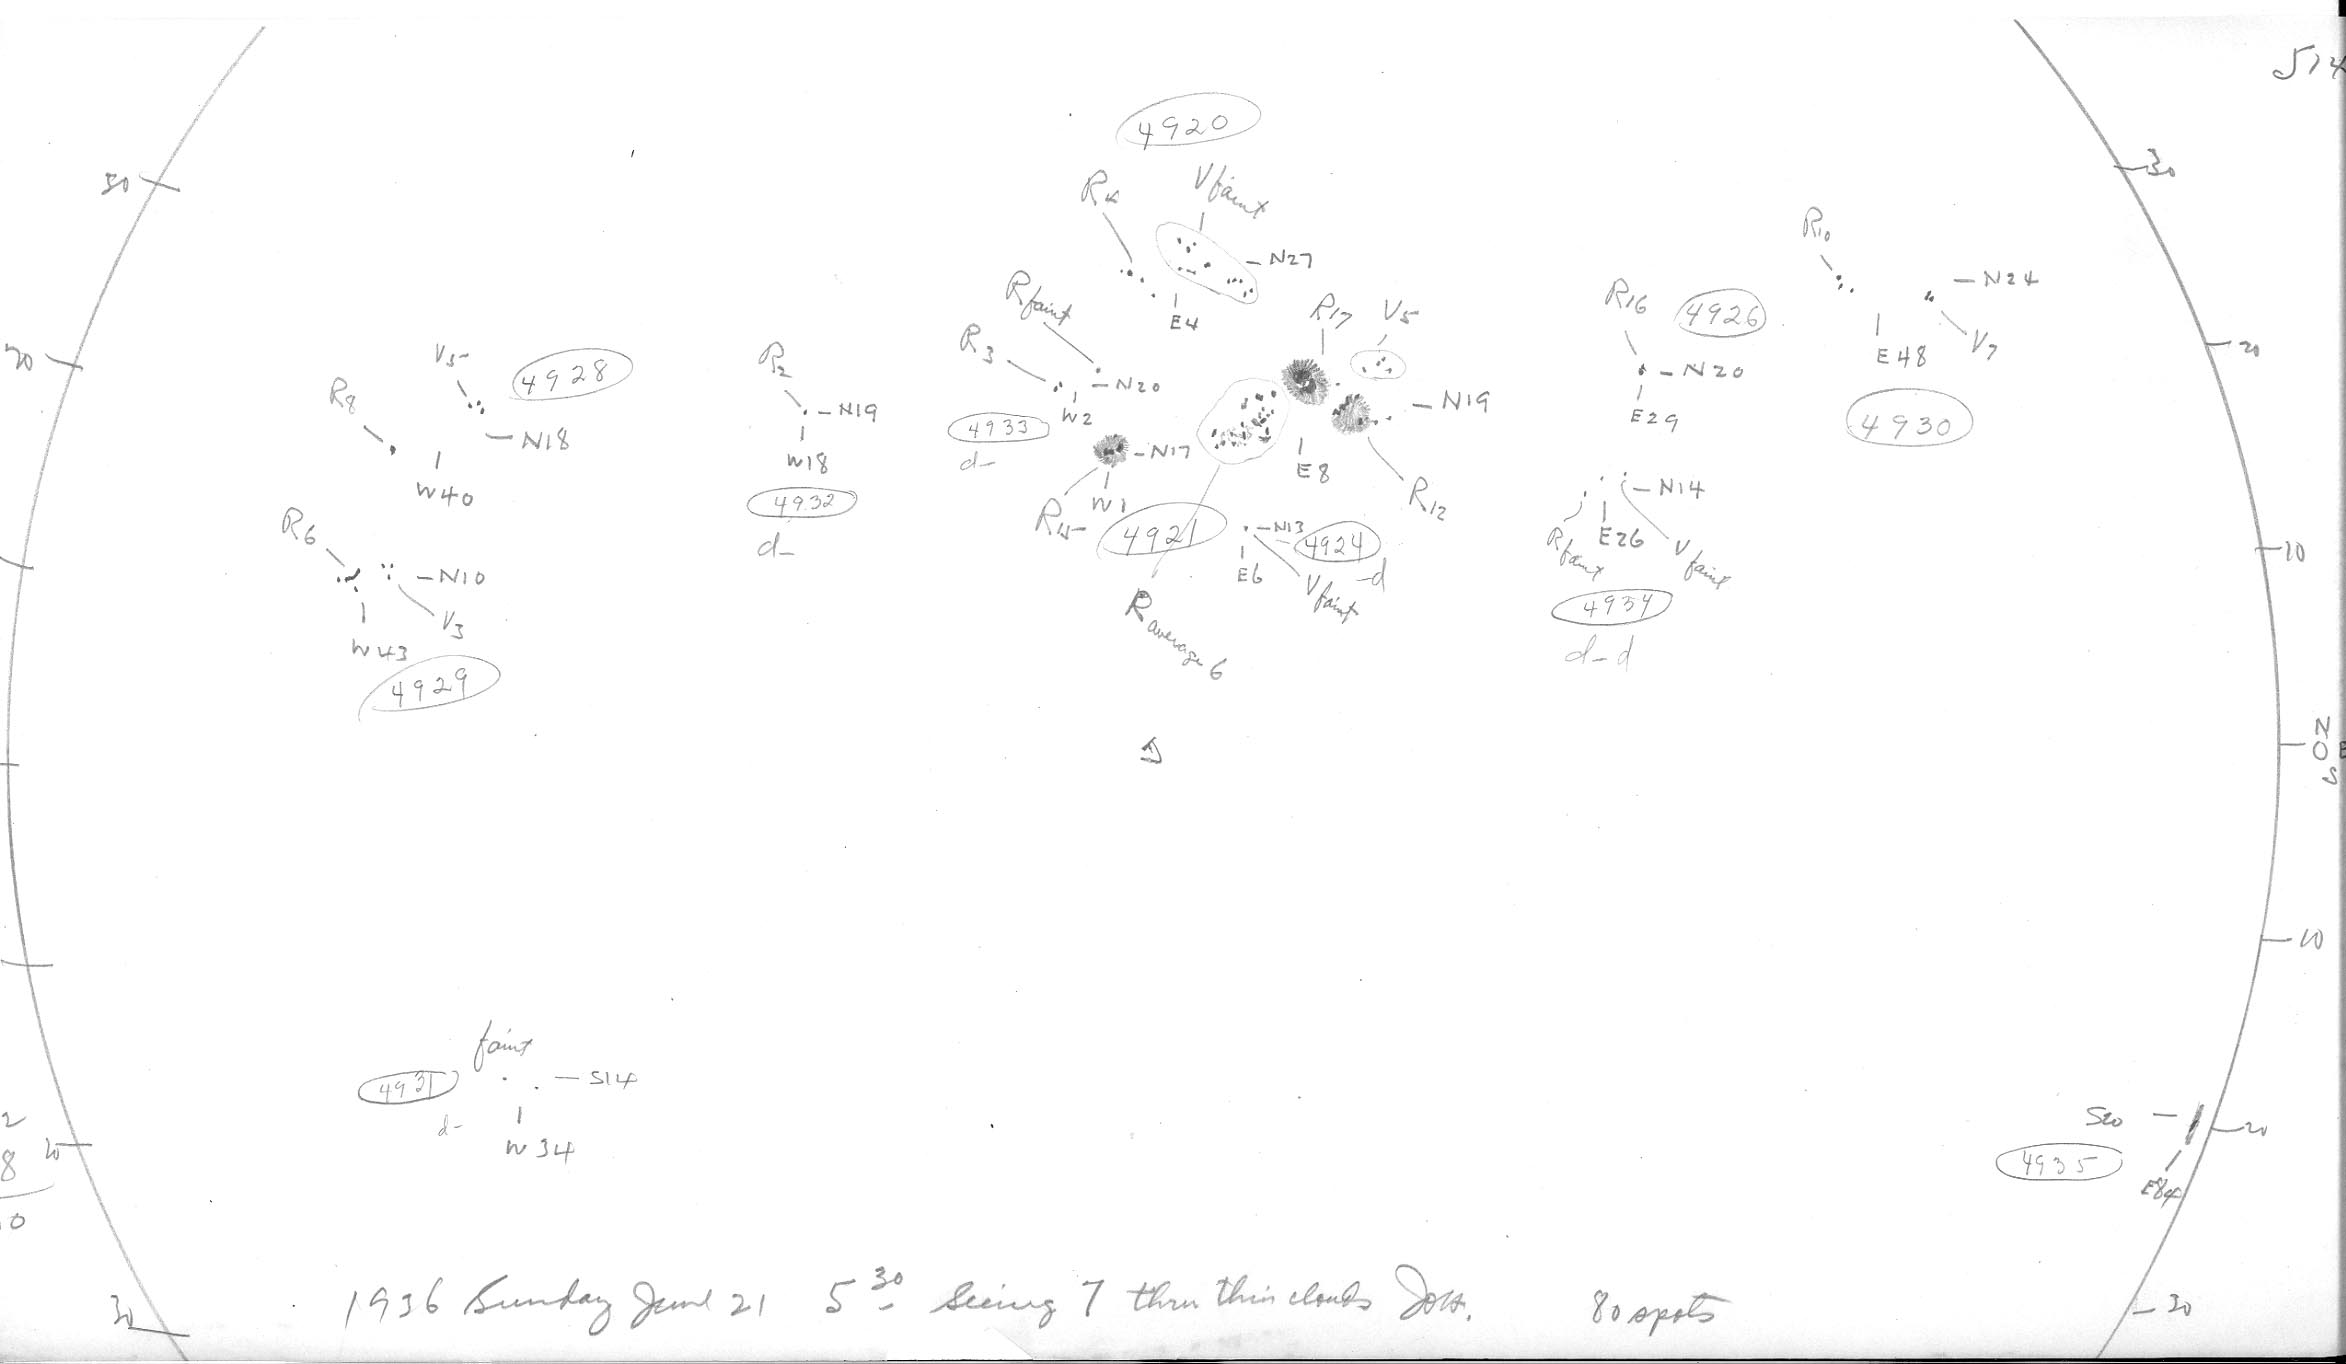 514
4920
30
30
R4
V faint
N27
E4
R10
N24
E48
V7
4930
R16
4926
N20
E29
R17
V5
N19
E8
R12
R faint
R3
N20
W2
4933
d-
N17
W1
R15
4921
R average 6
20
20
V5
4928
R8
N18
W40
R2
N19
W18
4932
d-
N13
4924
-d
E6
V faint
N14
E26
R faint
V faint
4934
d-d
R6
N10
V3
W43
4929
10
N
0
S
E
10
faint
4931
S14
d-
W34
S20
20
4935
E84
2
8
20
0
30
1936 Sunday June 21 5 30 Seeing 7 thru thin clouds 80 spots
30